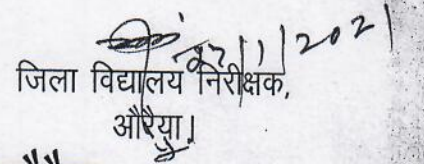 27/1/2021
जिला विद्यालय निरीक्षक,
औरैया।